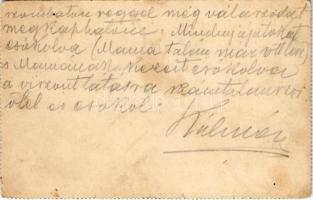 szombaton reggel még válaszodat
megkaphatom: Mindnyájatokat
csókolva (Mama talán már otthon)
és Mamának kezeit csókolva
a viszontlátásra számtalanszor
ölel és csókol:
Kálmán